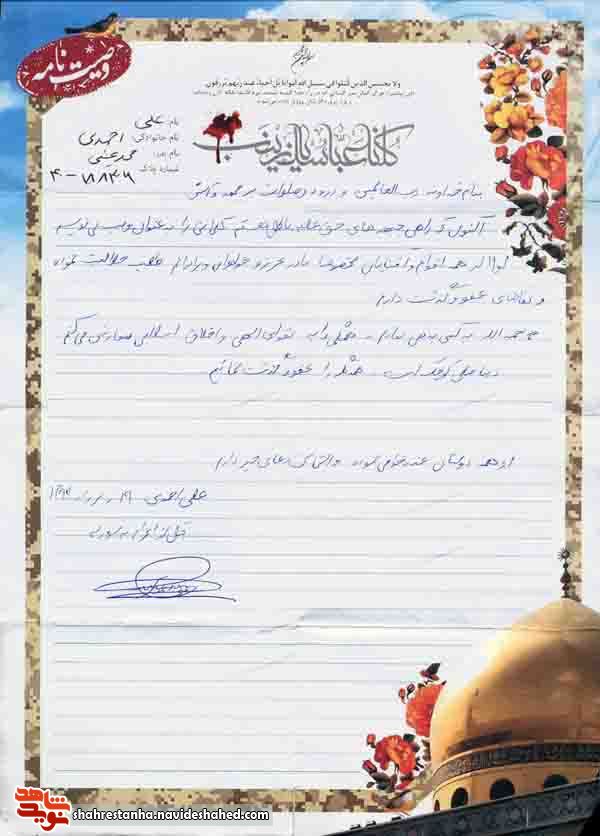 وصیت نامه
ولا تحسبن الذین قتلوا فی سبیل الله امواتا بل احیاء عند ربهم یرزقون
کلنا عباسک یا زینب
نام: علی
نام خانوادگی: احمدی
نام پدر: محمد عیسی
شماره پلاک:
۴۰-۷۸۳۶
بنام خداوند رب العالمین و درود و صلوات بر محمد و آلش
اکنون که راهی جبهه های حق علیه باطل هستم کلماتی را به عنوان وصیت می نویسم
اولا از همه اقوام و آشنایان مخصوصا مادر عزیزم و خواهران و برادرانم طلب حلالیت نموده
و تقاضای عفو و گذشت دارم
بحمد الله به کسی بدهی ندارم - همگی را به تقوای الهی و اخلاق اسلامی سفارش می کنم
دنیا خیلی کوچک است - همدیگر را عفو و گذشت نمائیم
از همه دوستان عذرخواهی نموده و التماس دعای خیر دارم
علی احمدی
قبل از اعزام به سوریه
شاهد
shahrestanha.navideshahed.com